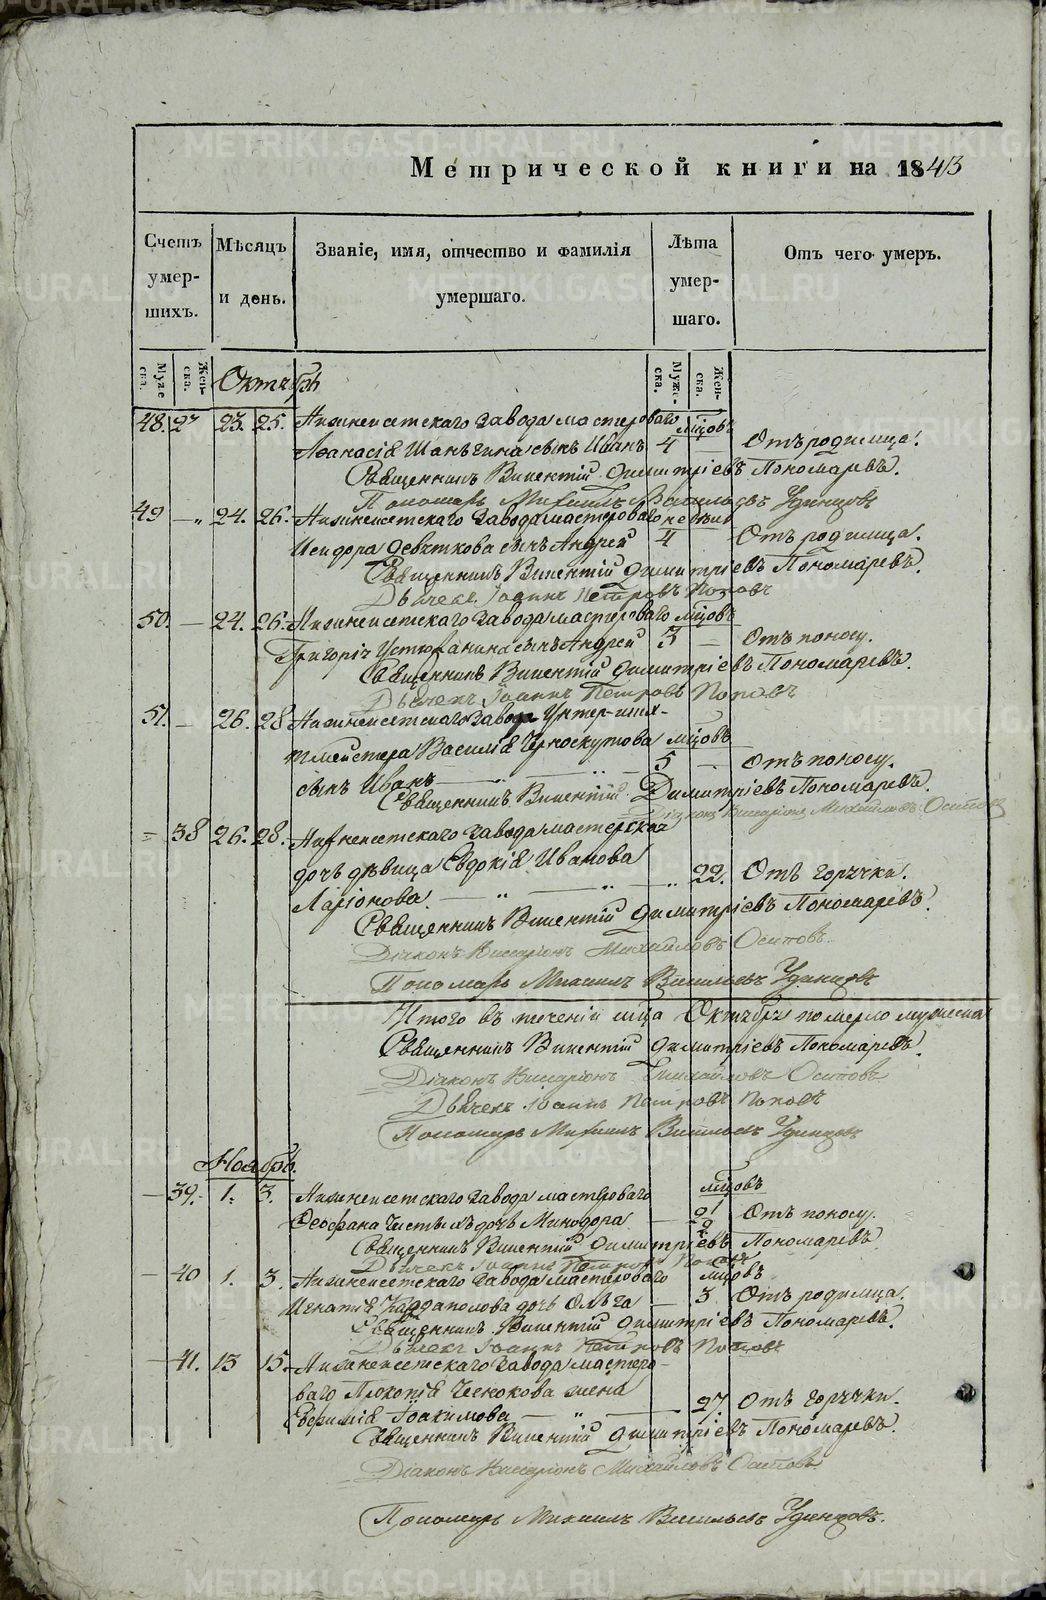 Метрической книги на 1843
Счетъ умер- шихъ.
Мѣсяцъ и день.
Званіе, имя, отчество и фамилія умершаго.
Лѣта умер- шаго.
Отъ чего умеръ.
Муже ска. Жен- ска. Октябрь Муже- ска. Жен- ска.
48. 23. 25. Нижнеисетскаго завода мастероваго мцовъ
Аѳанасія сынъ Иванъ 4 — Отъ родимца.
Священникъ Викентій Димитріевъ Пономаревъ.
Пономарь Михаилъ Васильевъ Удинцовъ
49 — „ 24. 26. Нижнеисетскаго завода мастероваго
Исидора Девяткова сынъ Андрей 4 — Отъ родимца.
Священникъ Викентій Димитріевъ Пономаревъ.
Дьячекъ Іоаннъ Петровъ Поповъ
50. — 24. 26. Нижнеисетскаго завода мастероваго мцовъ
Григорія Устюжанина сынъ Андрей 3 — Отъ поносу.
Священникъ Викентій Димитріевъ Пономаревъ.
Дьячекъ Іоаннъ Петровъ Поповъ
51. — 26. 28 Нижнеисетскаго завода Унтер-ших-
тмейстера Василія Черноскутова мцовъ
сынъ Иванъ — „ — 5 — Отъ поносу.
Священникъ Викентій Димитріевъ Пономаревъ.
Діаконъ Виссаріонъ Михайловъ Осиповъ
= 38 26. 28. Нижнеисетскаго завода мастерская
дочь дѣвица Евдокія Иванова
Ларіонова. — „ — „ — „ 22. Отъ горячки.
Священникъ Викентій Димитріевъ Пономаревъ.
Діаконъ Виссаріонъ Михайловъ Осиповъ.
Пономарь Михаилъ Васильевъ Удинцовъ
Итого въ теченіи мца Октября померло мужеска
Священникъ Викентій Димитріевъ Пономаревъ.
Діаконъ Виссаріонъ Михайловъ Осиповъ
Дьячекъ Іоаннъ Петровъ Поповъ
Пономарь Михаилъ Васильевъ Удинцовъ
Ноябрь.
— 39. 1. 3. Нижнеисетскаго завода мастероваго мцовъ
Ѳеофана дочь Минодора — Отъ поносу.
Священникъ Викентій Димитріевъ Пономаревъ
Дьячекъ Іоаннъ Петровъ Поповъ
— 40 1. 3. Нижнеисетскаго завода мастероваго мцовъ
Игнатія Кардаполова дочь Ольга — 3 Отъ родимца.
Священникъ Викентій Димитріевъ Пономаревъ.
Дьячекъ Іоаннъ Петровъ Поповъ
— 41. 13 15. Нижнеисетскаго завода мастеро-
ваго Прокопія Чеснокова жена
Евфимія Іоакимова — „ — 27. Отъ горячки.
Священникъ Викентій Димитріевъ Пономаревъ.
Діаконъ Виссаріонъ Михайловъ Осиповъ
Пономарь Михаилъ Васильевъ Удинцовъ.
METRIKI.GASO-URAL.RU